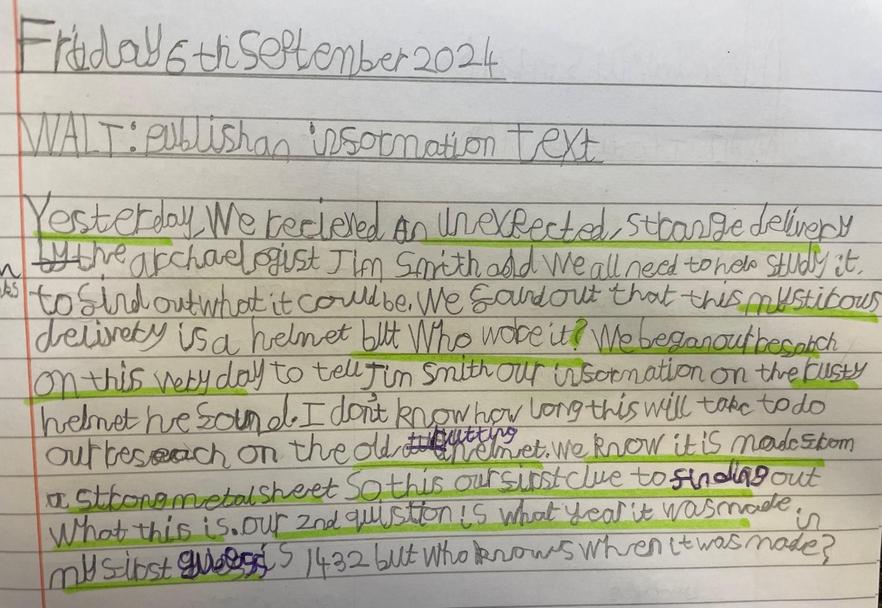 Friday 6th September 2024
WALT: publish an information text
Yesterday, We recieved an unexpected, strange delivery
by the archaelogist Jim Smith and We all need to help study it.
to find out what it could be. We found out that this mystirous
delivery is a helmet but Who wore it? We began our research
on this very day to tell Jim Smith our information on the rusty
helmet he found. I don't know how long this will take to do
our reseach on the old rutting helmet. we know it is made from
a strong metal sheet So this our first clue to finding out
What this is. our 2nd quistion is what year it was made in
my first guess is 1432 but who knows when it was made?